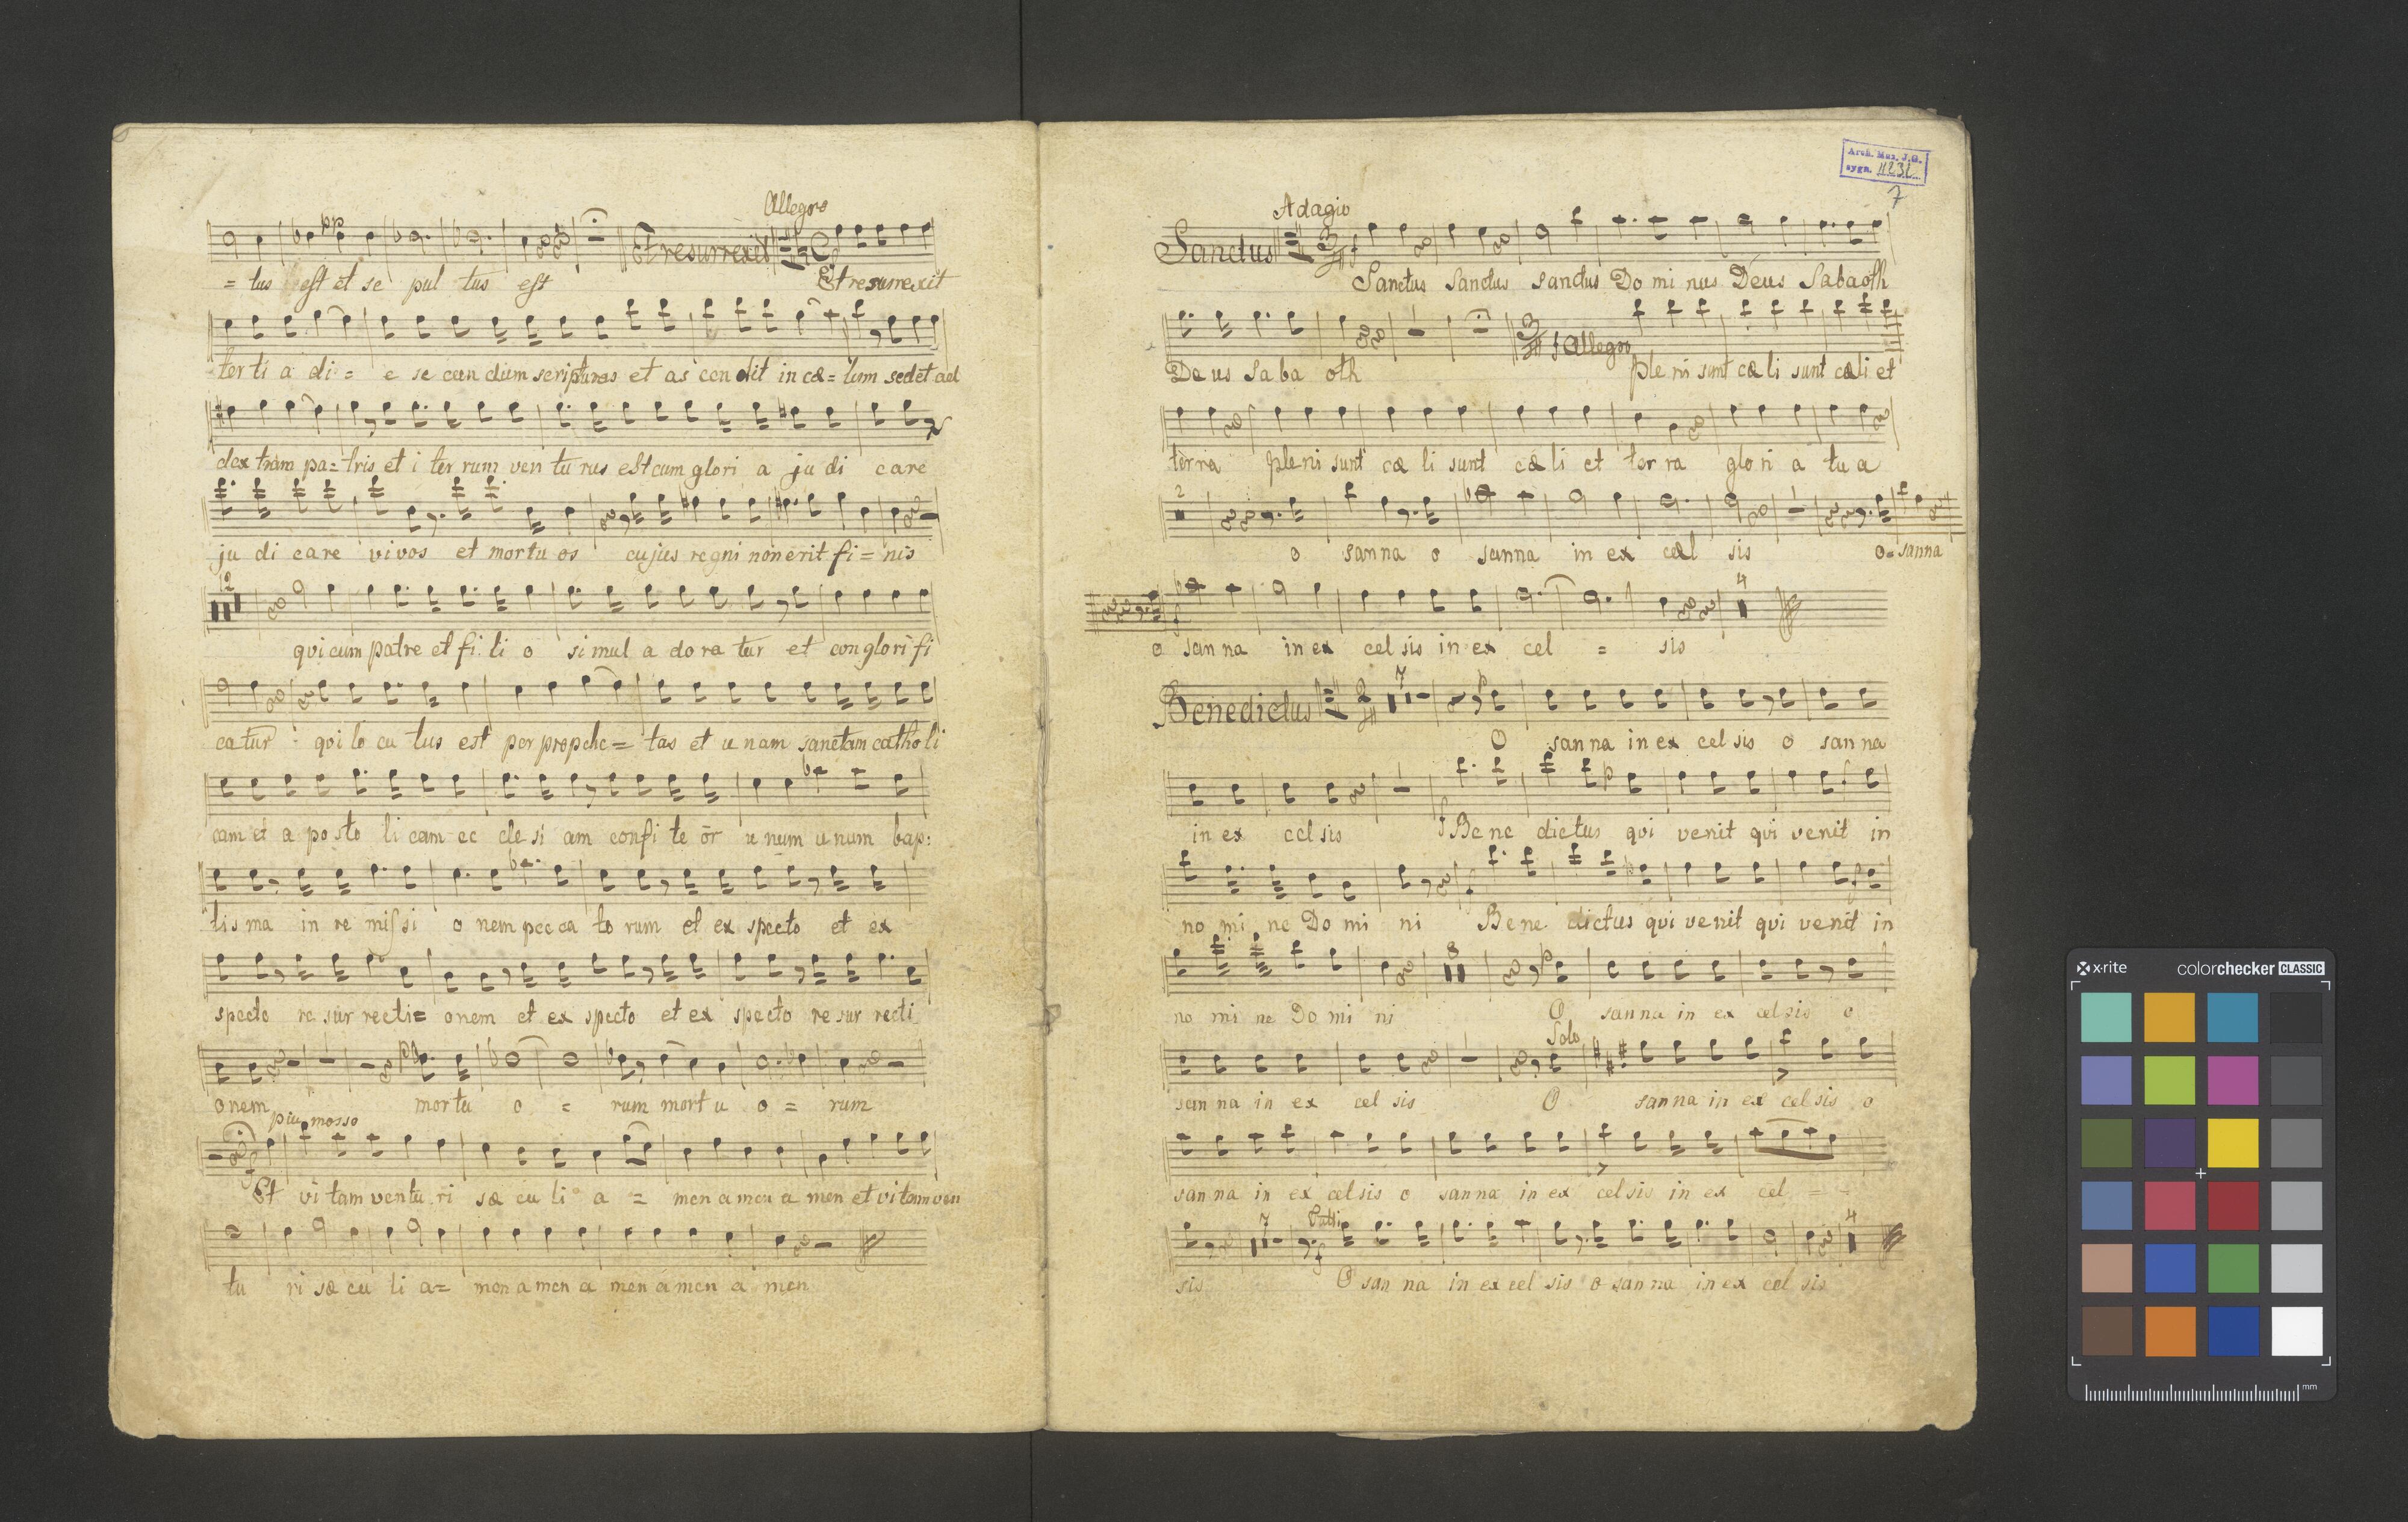 Allegro
Et resurrexit
= tus est et se pul tus est Et resurrexit
ter ti a di = e se cun dum scripturas et as cen dit in cæ = lum sedet ad
dex tram pa = tris et i ter rum ven tu rus est cum glori a ju di care
ju di care vivos et mortu os cujus regni non erit fi = nis
12
qui cum patre et fi li o si mul a do ra tur et con glori fi
catur qui lo cu tus est per prophe = tas et u nam sanctam catho li
cam et a posto li cam ec cle si am confi te or u num u num bap:
tis ma in re mis si o nem pec ca to rum et ex specto et ex
specto re sur recti = onem et ex specto et ex specto re sur recti
onem mortu o = rum mort u o = rum
piu mosso
Et vi tam ventu ri sæ cu li a = men a men a men et vi tam ven
tu ri sæ cu li a = men a men a men a men a men
Arch. Muz. J.G.
sygn. 1123L
7
Adagio
Sanctus
Sanctus Sanctus Sanctus Do mi nus Deus Sabaoth
Allegro
De us Sa ba oth ple ni sunt cæ li sunt cæli et
terra ple ni sunt cæ li sunt cæ li et ter ra glo ri a tu a
2
o sanna o sanna in ex cæl sis o = sanna
4
o san na in ex cel sis in ex cel = sis
Benedictus
7
O san na in ex cel sis o san na
in ex cel sis Be ne dictus qui venit qui venit in
no mi ne Do mi ni Be ne dictus qui venit qui venit in
8
no mi ne Do mi ni O san na in ex cel sis o
Solo
san na in ex cel sis O san na in ex cel sis o
san na in ex cel sis o san na in ex cel sis in ex cel = =
7 Tutti 4
sis O san na in ex cel sis o san na in ex cel sis
x-rite colorchecker CLASSIC
mm